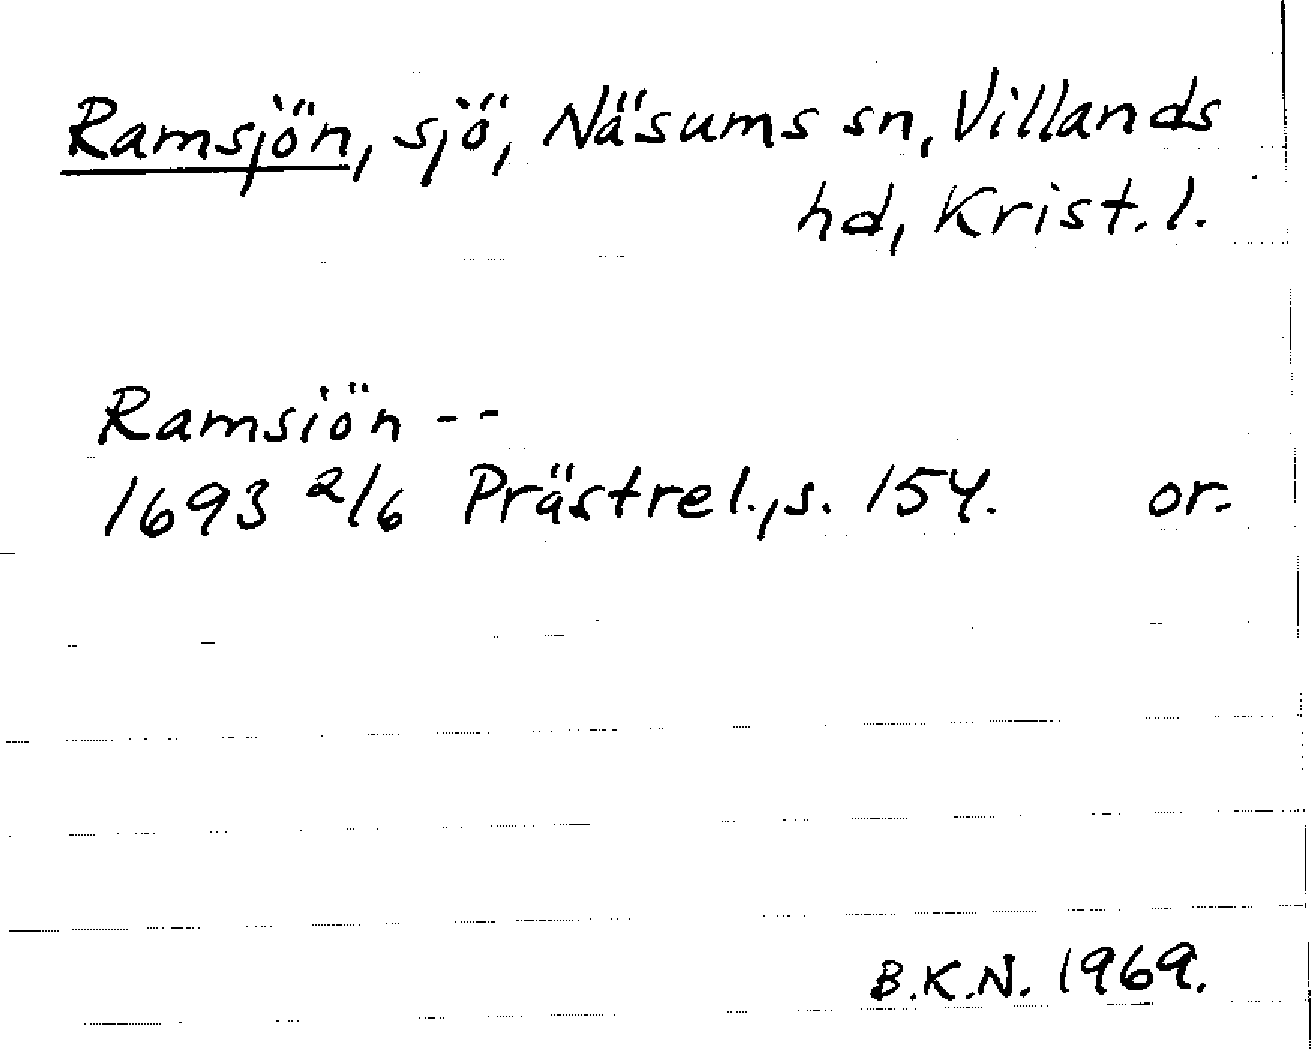 Ramsjön, sjö, Näsums sn, Villands
hd, Krist. l.
Ramsiön --
1693 2/6 Prästrel., s. 154. or.
B.K.N. 1969.